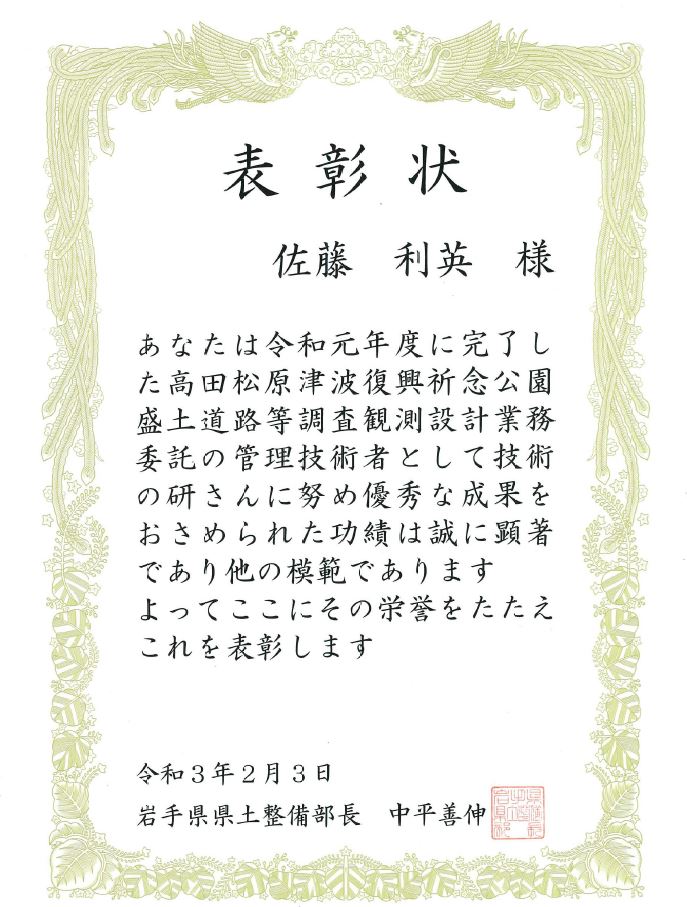 表彰状
佐藤　利英　様
あなたは令和元年度に完了し
た高田松原津波復興祈念公園
盛土道路等調査観測設計業務
委託の管理技術者として技術
の研さんに努め優秀な成果を
おさめられた功績は誠に顕著
であり他の模範であります
よってここにその栄誉をたたえ
これを表彰します
令和３年２月３日
岩手県県土整備部長　中平善伸